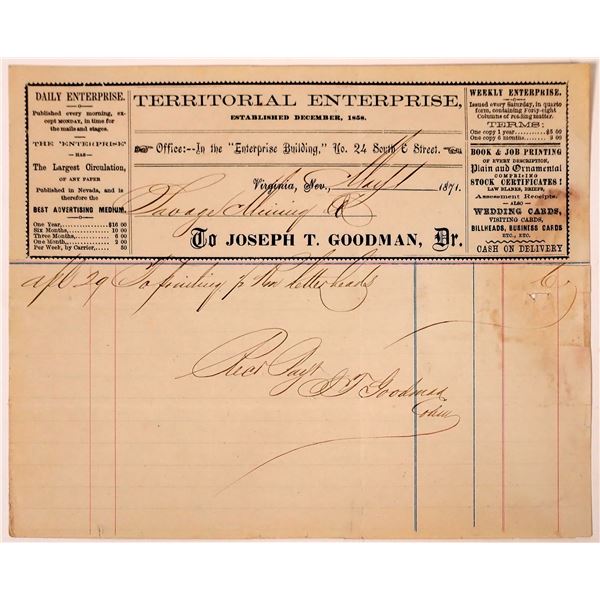 DAILY ENTERPRISE.
Published every morning, ex-
cept MONDAY, in time for
the mails and stages.
THE "ENTERPRISE"
HAS
The Largest Circulation,
OF ANY PAPER
Published in Nevada, and is
therefore the
BEST ADVERTISING MEDIUM.
One Year, $16 00
Six Months, 10 00
Three Months, 6 00
One Month, 2 00
Per Week, by Carrier, 50
TERRITORIAL ENTERPRISE,
ESTABLISHED DECEMBER, 1858.
Office:--In the "Enterprise Building," No. 24 South C Street.
Virginia, Nev., May 1 1871.
Savage Mining Co
To JOSEPH T. GOODMAN, Dr.
WEEKLY ENTERPRISE.
Issued every Saturday, in quarto
form, containing Forty-eight
Columns of reading matter.
TERMS:
One copy 1 year, $5 00
One copy 6 months, 3 00
BOOK & JOB PRINTING
OF EVERY DESCRIPTION,
Plain and Ornamental
COMPRISING
STOCK CERTIFICATES!
LAW BLANKS, BRIEFS,
Assessment Receipts,
ALSO
WEDDING CARDS,
VISITING CARDS,
BILLHEADS, BUSINESS CARDS
ETC., ETC.
CASH ON DELIVERY
Apl 29 To printing Rm letterheads 6
Recd Payt
J T Goodman